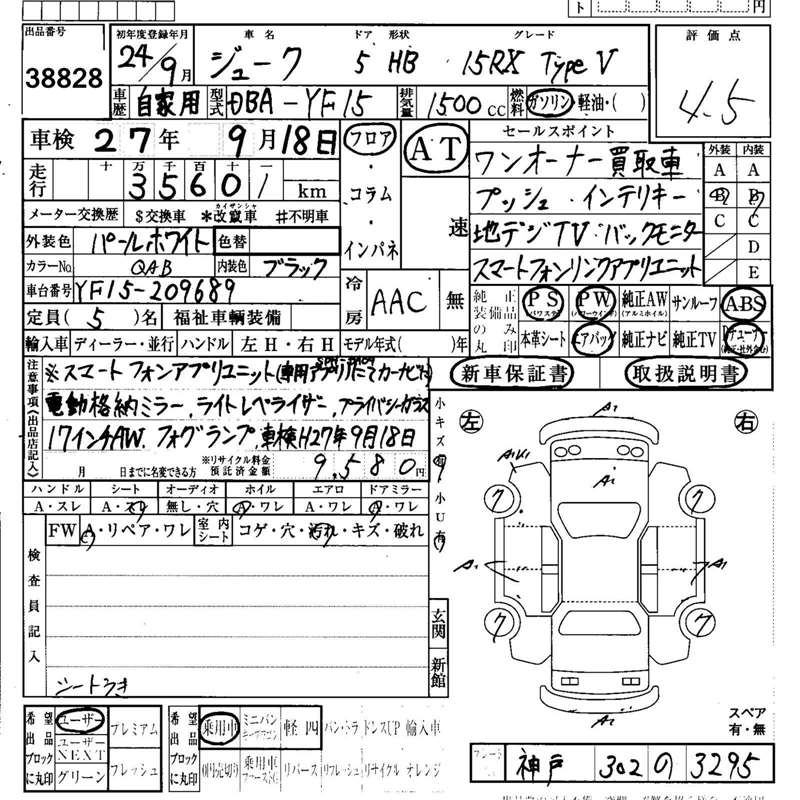 円
出品番号
38828
初年度登録年月
24/9月
車名
ジューク
ドア 形状
5 HB
グレード
15RX TypeV
評価点
4.5
車歴
自家用
型式
DBA-YF15
排気量
1500cc
燃料
ガソリン・軽油・( )
車検 27年 9月18日
走行
十 万 千 百 十
3 5 6 0 1 km
メーター交換歴 $交換車 *改竄車 #不明車
カイザンシャ
外装色
パールホワイト
色替
カラーNo.
QAB
内装色
ブラック
車台番号
YF15-209689
定員( 5 )名 福祉車輌装備
フロア
・
コラム
・
インパネ
AT
速
冷房
AAC
無
セールスポイント
ワンオーナー買取車
プッシュ・インテリキー
地デジTV・バックモニター
スマートフォンリンクアプリユニット
外装 内装
A A
B B
C C
D
E
純正装備品のみ丸印
PS
(パワステ)
PW
(パワーウインド)
純正AW
(アルミホイル)
サンルーフ
ABS
本革シート
エアバッグ
純正ナビ
純正TV
TVチューナー
(純正・社外含む)
輸入車 ディーラー・並行 ハンドル 左H・右H モデル年式( )年
新車保証書 取扱説明書
注意事項(出品店記入)
※スマートフォンアプリユニット(専用アプリDLにてカーナビ可)
電動格納ミラー、ライトレベライザー、プライバシーガラス
17インチAW、フォグランプ、車検H27年9月18日
月 日までに名変できる方
※リサイクル料金
預託済金額
9,580円
ハンドル シート オーディオ ホイル エアロ ドアミラー
A・スレ A・スレ 無し・穴 A・ワレ A・ワレ A・ワレ
FW A・リペア・ワレ
室内シート
コゲ・穴・汚れ・キズ・破れ
小キズ有
小U有
検査員記入
シートうき
玄関
新館
左
右
A1
A1U1
A1
A1
A1
A1
7
7
7
7
スペア
有・無
希望出品ブロックに丸印
ユーザー
プレミアム
ユーザーNEXT
グリーン
フレッシュ
希望出品ブロックに丸印
乗用車
軽四
輸入車
リバース
神戸 302 の 3295